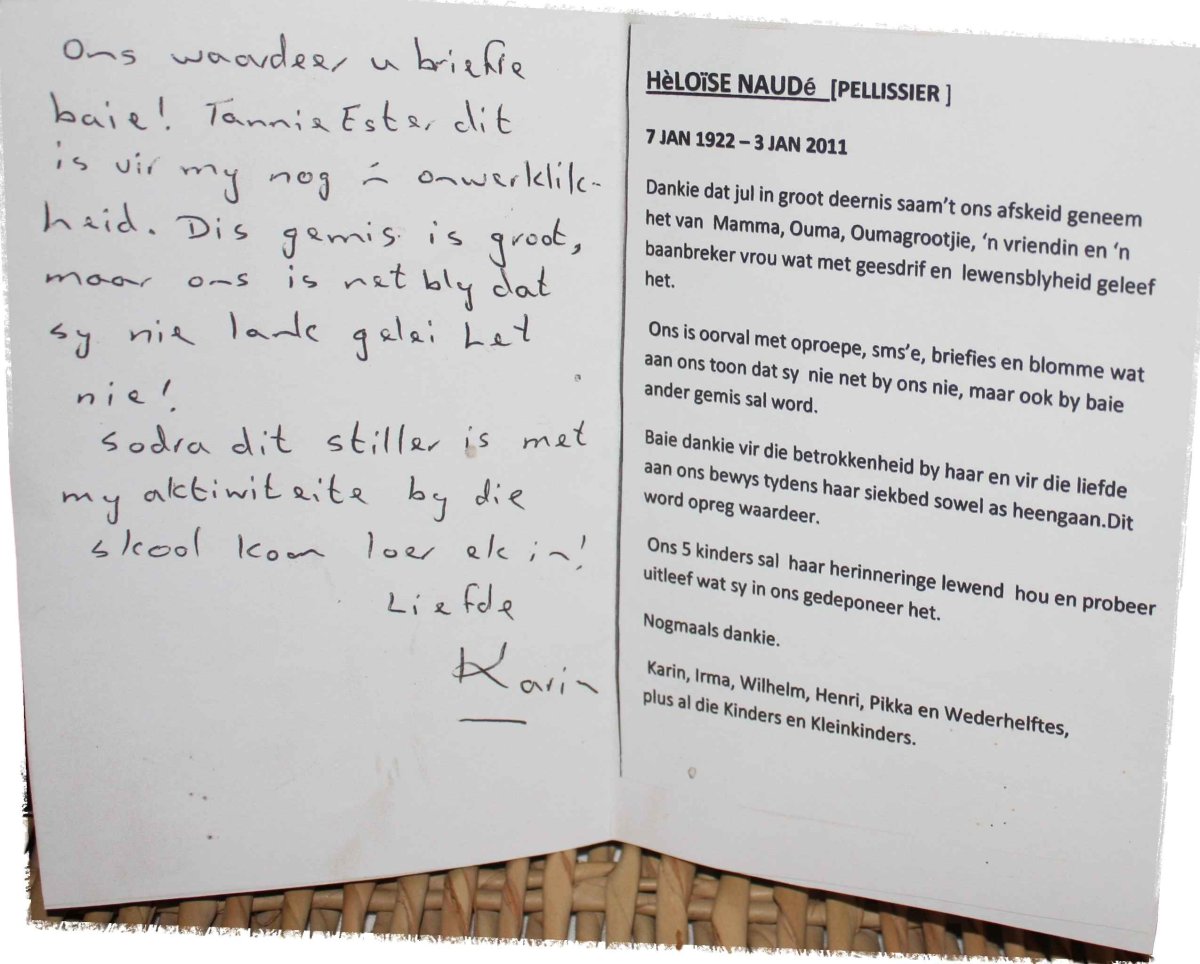 Ons waardeer u briefie
baie! Tannie Ester dit
is vir my nog 'n onwerklik-
heid. Dis gemis is groot,
maar ons is net bly dat
sy nie lank gelei het
nie!
Sodra dit stiller is met
my aktiwiteite by die
skool kom loer ek in!
Liefde
Karin
HèLOïSE NAUDé [PELLISSIER ]
7 JAN 1922 – 3 JAN 2011
Dankie dat jul in groot deernis saam't ons afskeid geneem
het van Mamma, Ouma, Oumagrootjie, 'n vriendin en 'n
baanbreker vrou wat met geesdrif en lewensblyheid geleef
het.
Ons is oorval met oproepe, sms'e, briefies en blomme wat
aan ons toon dat sy nie net by ons nie, maar ook by baie
ander gemis sal word.
Baie dankie vir die betrokkenheid by haar en vir die liefde
aan ons bewys tydens haar siekbed sowel as heengaan.Dit
word opreg waardeer.
Ons 5 kinders sal haar herinneringe lewend hou en probeer
uitleef wat sy in ons gedeponeer het.
Nogmaals dankie.
Karin, Irma, Wilhelm, Henri, Pikka en Wederhelftes,
plus al die Kinders en Kleinkinders.